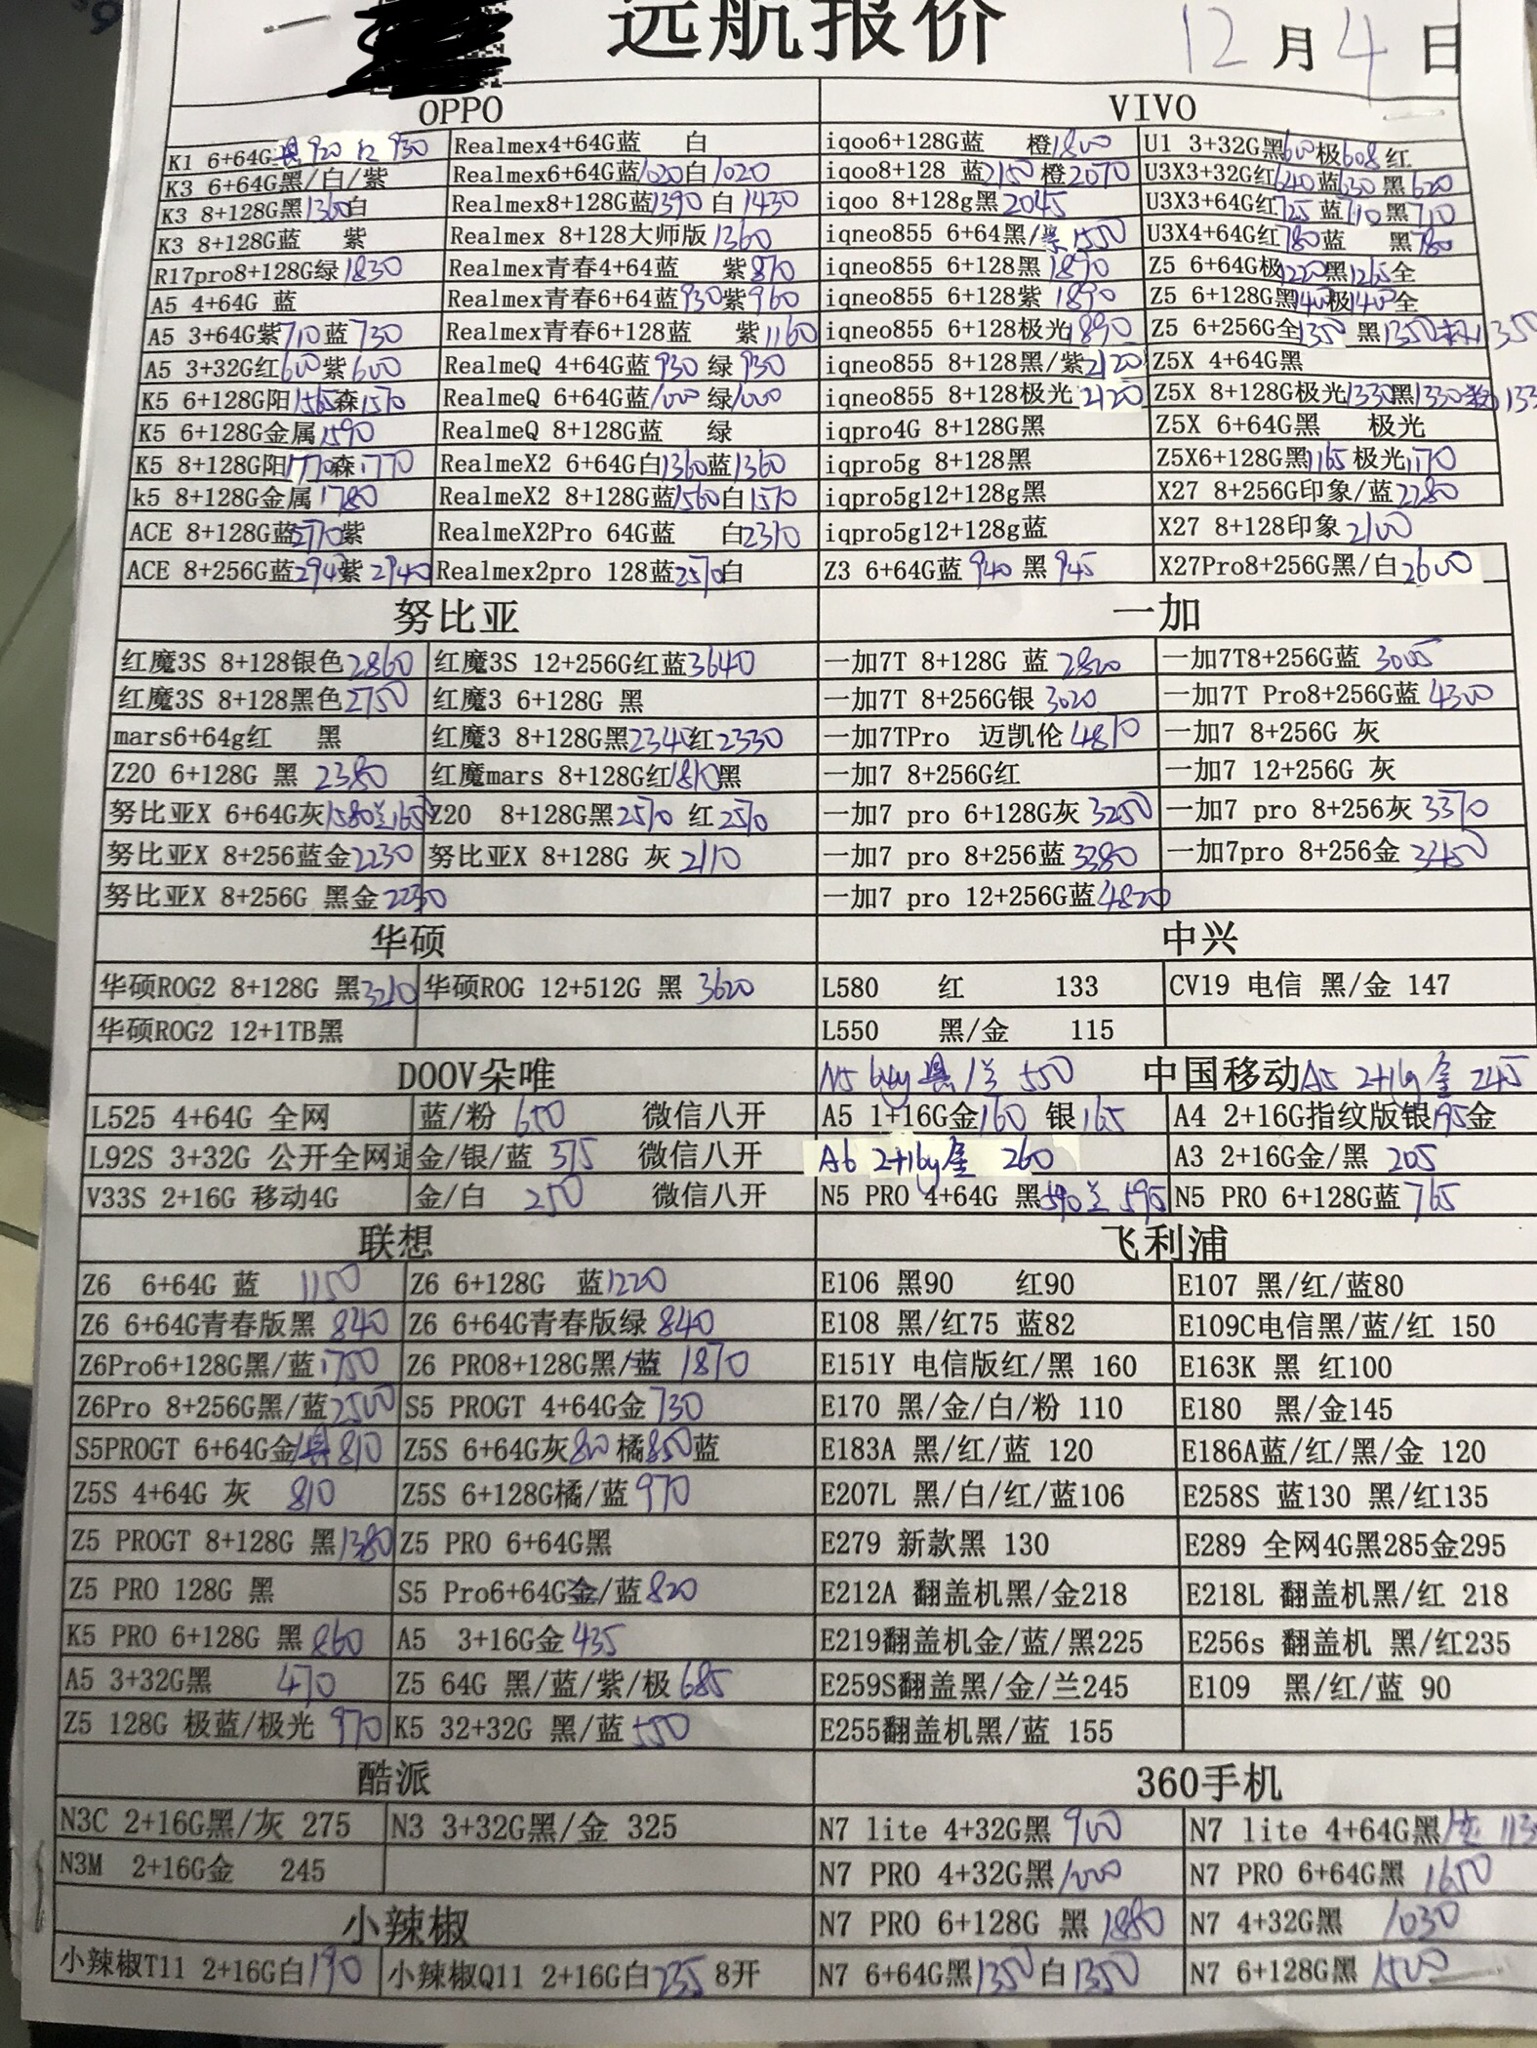 远航报价 12月4日
OPPO VIVO
K1 6+64G黑920 红930 Realmex4+64G蓝 白 iqoo6+128G蓝 橙1800 U1 3+32G黑600极608红
K3 6+64G黑/白/紫 Realmex6+64G蓝1020白1020 iqoo8+128 蓝2150橙2070 U3X3+32G红640蓝630黑620
K3 8+128G黑1360白 Realmex8+128G蓝1390白1430 iqoo 8+128g黑2045 U3X3+64G红725蓝710黑710
K3 8+128G蓝 紫 Realmex 8+128大师版1360 iqneo855 6+64黑/紫1550 U3X4+64G红780蓝 黑780
R17pro8+128G绿1830 Realmex青春4+64蓝 紫870 iqneo855 6+128黑1890 Z5 6+64G极1220黑1265全
A5 4+64G 蓝 Realmex青春6+64蓝930紫960 iqneo855 6+128紫1890 Z5 6+128G黑1400极1400全
A5 3+64G紫710蓝730 Realmex青春6+128蓝 紫1160 iqneo855 6+128极光1890 Z5 6+256G全1350 黑1350 1350
A5 3+32G红600紫600 RealmeQ 4+64G蓝930绿930 iqneo855 8+128黑/紫2120 Z5X 4+64G黑
K5 6+128G阳1565森1570 RealmeQ 6+64G蓝1000绿1000 iqneo855 8+128极光2120 Z5X 8+128G极光1330黑1330
K5 6+128G金属1590 RealmeQ 8+128G蓝 绿 iqpro4G 8+128G黑 Z5X 6+64G黑 极光
K5 8+128G阳1770森1770 RealmeX2 6+64G白1360蓝1360 iqpro5g 8+128黑 Z5X6+128G黑1165极光1170
k5 8+128G金属1780 RealmeX2 8+128G蓝1560白1570 iqpro5g12+128g黑 X27 8+256G印象/蓝2280
ACE 8+128G蓝2710紫 RealmeX2Pro 64G蓝 白2310 iqpro5g12+128g蓝 X27 8+128印象2100
ACE 8+256G蓝2940紫2940 Realmex2pro 128蓝2570白 Z3 6+64G蓝940黑945 X27Pro8+256G黑/白2600
努比亚 一加
红魔3S 8+128银色2860 红魔3S 12+256G红蓝3640 一加7T 8+128G 蓝2820 一加7T8+256G蓝3005
红魔3S 8+128黑色2750 红魔3 6+128G 黑 一加7T 8+256G银3020 一加7T Pro8+256G蓝4300
mars6+64g红 黑 红魔3 8+128G黑2340红2330 一加7TPro 迈凯伦4810 一加7 8+256G 灰
Z20 6+128G 黑2380 红魔mars 8+128G红1810黑 一加7 8+256G红 一加7 12+256G 灰
努比亚X 6+64G灰1580兰165 Z20 8+128G黑2570 红2570 一加7 pro 6+128G灰3250 一加7 pro 8+256灰3370
努比亚X 8+256蓝金2230 努比亚X 8+128G 灰2110 一加7 pro 8+256蓝3380 一加7pro 8+256金3450
努比亚X 8+256G 黑金2230 一加7 pro 12+256G蓝4820
华硕 中兴
华硕ROG2 8+128G 黑3210 华硕ROG 12+512G 黑3620 L580 红 133 CV19 电信 黑/金 147
华硕ROG2 12+1TB黑 L550 黑/金 115
DOOV朵唯 N5 6+64g黑/兰550 中国移动A5 2+16g金245
L525 4+64G 全网 蓝/粉650 微信八开 A5 1+16G金160 银165 A4 2+16G指纹版银195金
L92S 3+32G 公开全网通 金/银/蓝375 微信八开 A6 2+16g金 260 A3 2+16G金/黑205
V33S 2+16G 移动4G 金/白 250 微信八开 N5 PRO 4+64G 黑590兰595 N5 PRO 6+128G蓝765
联想 飞利浦
Z6 6+64G 蓝 1150 Z6 6+128G 蓝1220 E106 黑90 红90 E107 黑/红/蓝80
Z6 6+64G青春版黑840 Z6 6+64G青春版绿840 E108 黑/红75 蓝82 E109C电信黑/蓝/红 150
Z6Pro6+128G黑/蓝1750 Z6 PRO8+128G黑/蓝1870 E151Y 电信版红/黑 160 E163K 黑 红100
Z6Pro 8+256G黑/蓝2500 S5 PROGT 4+64G金730 E170 黑/金/白/粉 110 E180 黑/金145
S5PROGT 6+64G金/黑810 Z5S 6+64G灰800橘850蓝 E183A 黑/红/蓝 120 E186A蓝/红/黑/金 120
Z5S 4+64G 灰 810 Z5S 6+128G橘/蓝970 E207L 黑/白/红/蓝106 E258S 蓝130 黑/红135
Z5 PROGT 8+128G 黑1380 Z5 PRO 6+64G黑 E279 新款黑 130 E289 全网4G黑285金295
Z5 PRO 128G 黑 S5 Pro6+64G金/蓝820 E212A 翻盖机黑/金218 E218L 翻盖机黑/红 218
K5 PRO 6+128G 黑860 A5 3+16G金435 E219翻盖机金/蓝/黑225 E256s 翻盖机 黑/红235
A5 3+32G黑 470 Z5 64G 黑/蓝/紫/极685 E259S翻盖黑/金/兰245 E109 黑/红/蓝 90
Z5 128G 极蓝/极光970 K5 32+32G 黑/蓝550 E255翻盖机黑/蓝 155
酷派 360手机
N3C 2+16G黑/灰 275 N3 3+32G黑/金 325 N7 lite 4+32G黑900 N7 lite 4+64G黑
N3M 2+16G金 245 N7 PRO 4+32G黑1000 N7 PRO 6+64G黑1650
小辣椒 N7 PRO 6+128G 黑1880 N7 4+32G黑 1030
小辣椒T11 2+16G白190 小辣椒Q11 2+16G白235 8开 N7 6+64G黑1350白1350 N7 6+128G黑1500